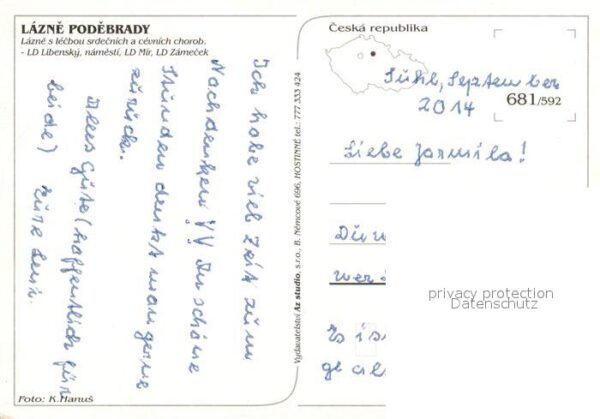 LÁZNĚ PODĚBRADY
Lázně s léčbou srdečních a cévních chorob.
- LD Libenský, náměstí, LD Mír, LD Zámeček
Česká republika
681/592
Suhl, September
2014
Liebe Jarmila!
Du
wer
Es is
Ich habe viel Zeit zum
Nachdenken !! An schöne
Stunden denkt man gerne
zurück.
Alles Gute (hoffentlich für
beide)
Vydavatelství Az studio, s.r.o., B. Němcové 696, HOSTINNÉ tel.: 777 333 424
Foto: K.Hanuš
privacy protection
Datenschutz